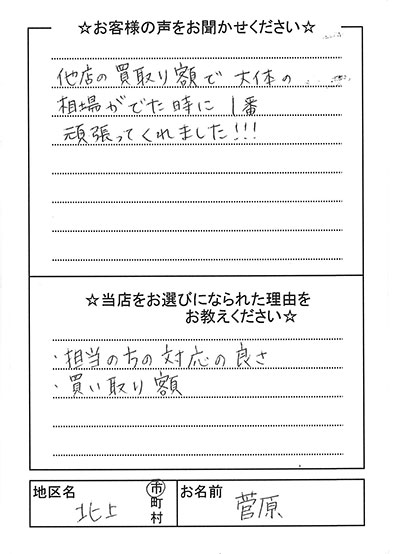 ☆お客様の声をお聞かせください☆
他店の買取り額で大体の
相場がでた時に1番
頑張ってくれました!!!
☆当店をお選びになられた理由を
お教えください☆
・担当のちの対応の良さ
・買い取り額
地区名 北上 市町村 お名前 菅原